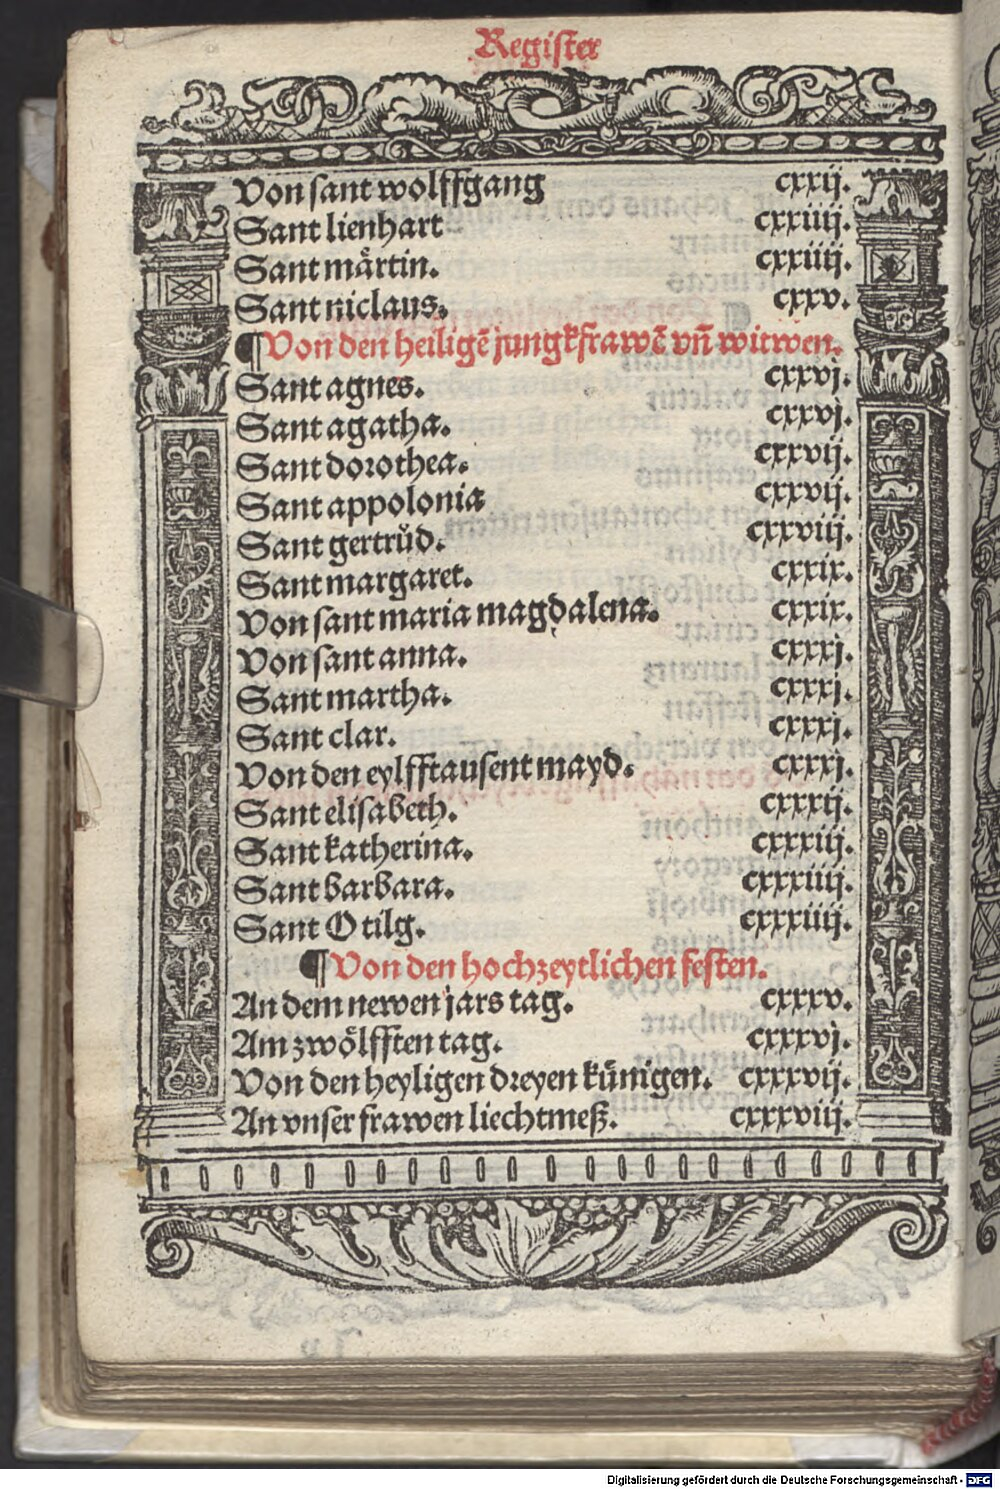 Register
Von sant wolffgang cxxij.
Sant lienhart cxxiiij.
Sant maͤrtin. cxxiiij.
Sant niclaus. cxxv.
¶Von den heiligē jungkfrawē vñ witwen.
Sant agnes. cxxvj.
Sant agatha. cxxvj.
Sant dorothea. cxxvij.
Sant appolonia cxxvij.
Sant gertrůd. cxxviij.
Sant margaret. cxxix.
Von sant maria magdalena. cxxix.
Von sant anna. cxxxj.
Sant martha. cxxxj.
Sant clar. cxxxj.
Von den eylfftausent mayd. cxxxj.
Sant elisabeth. cxxxij.
Sant katherina. cxxxiij.
Sant barbara. cxxxiiij.
Sant Otilg. cxxxiiij.
¶Von den hochzeytlichen festen.
An dem newen jars tag. cxxxv.
Am zwoͤlfften tag. cxxxvj.
Von den heyligen dreyen kuͤnigen. cxxxvij.
An vnser frawen liechtmeß. cxxxviij.
Digitalisierung gefördert durch die Deutsche Forschungsgemeinschaft - DFG